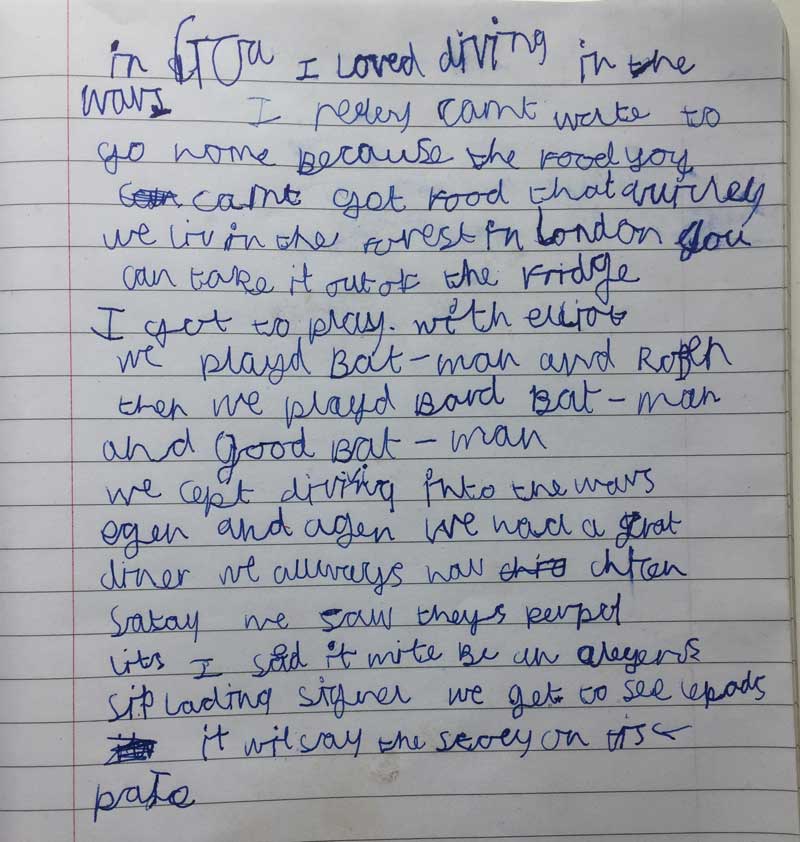 in GOa I Loved diving in the
wavs I reley camt wate to
go home Because the Food yoy
camt get Food that quickley
we liv in the Forest in London you
can take it out of the Fridge
I got to play. with elliot
we playd Bat-man and Roben
then we playd Bard Bat-man
and good Bat-man
we cept diving into the wavs
egen and agen we had a grat
diner we allways hav
satay we saw theys perpel
lits I said it mite Be an
sip lading signel we get to see lepads
it wil say the storey on tis